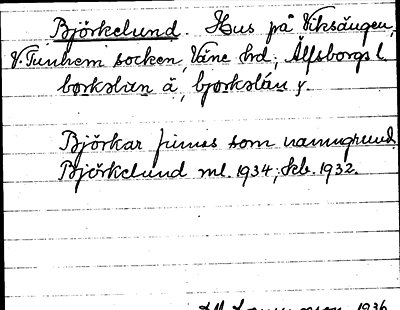 Björkelund. Hus på Viksängen,
V. Tunhem socken, Väne hrd; Älfsborgs l.
börkəlun ä, bjorkəlún y.
Björkar finnas som namngrund.
Björkelund ml. 1934; skb. 1932.
1936